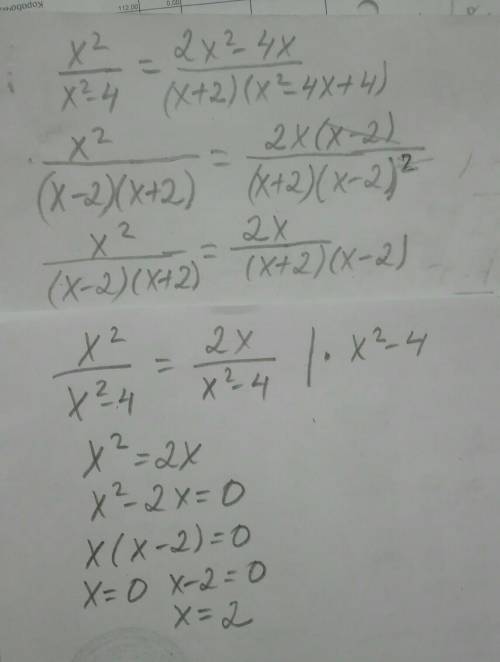 Коробочн 112,00 0,00
x²/(x²-4) = (2x²-4x)/((x+2)(x²-4x+4))
x²/((x-2)(x+2)) = (2x(x-2))/((x+2)(x-2)²)
x²/((x-2)(x+2)) = 2x/((x+2)(x-2))
x²/(x²-4) = 2x/(x²-4) |· x²-4
x²=2x
x²-2x=0
x(x-2)=0
x=0 x-2=0
x=2